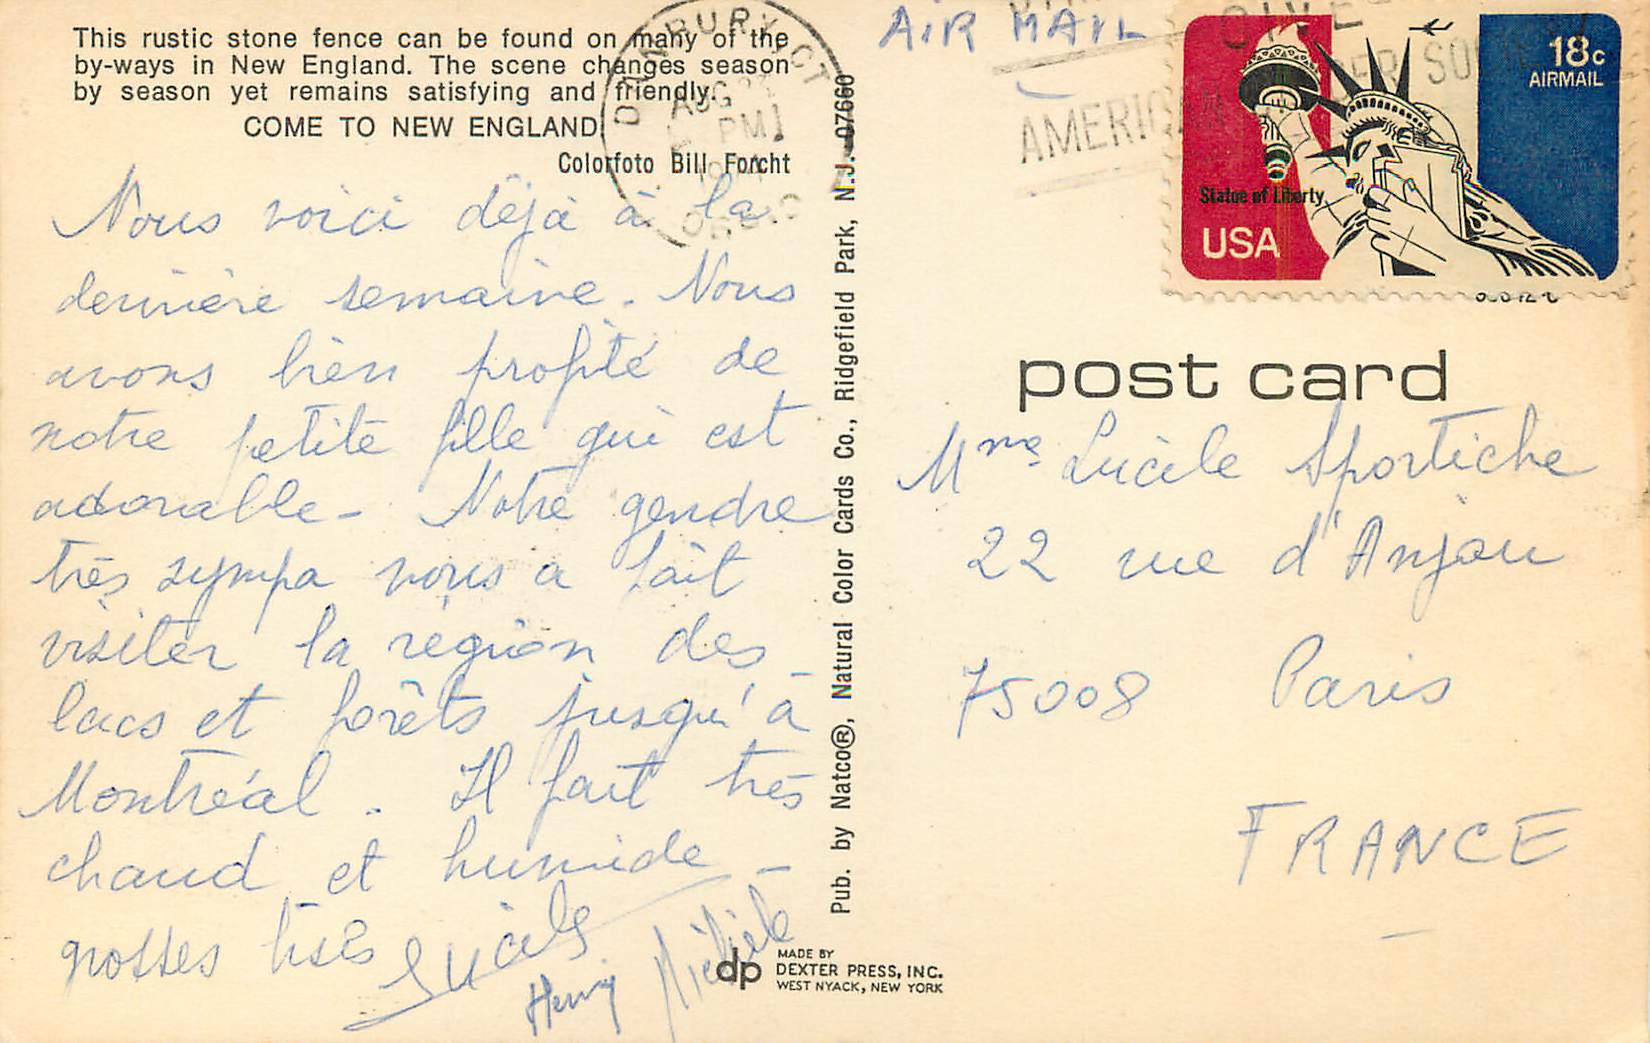 This rustic stone fence can be found on many of the
by-ways in New England. The scene changes season
by season yet remains satisfying and friendly.
COME TO NEW ENGLAND
Colorfoto Bill Forcht
Nous voici déjà à la
dernière semaine. Nous
avons bien profité de
notre petite fille qui est
adorable - Notre gendre
très sympa nous a fait
visiter la région des
lacs et forêts jusqu'à
Montréal. Il fait très
chaud et humide -
grosses bises
Lucile
Henry Michèle
Pub. by Natco®, Natural Color Cards Co., Ridgefield Park, N.J. 07660
dp
MADE BY
DEXTER PRESS, INC.
WEST NYACK, NEW YORK
DANBURY, CT
AUG
PM
AIR MAIL
GIVE
AMERICAN
18c
AIRMAIL
Statue of Liberty
USA
post card
Mme Lucile Sportiche
22 rue d'Anjou
75008 Paris
FRANCE